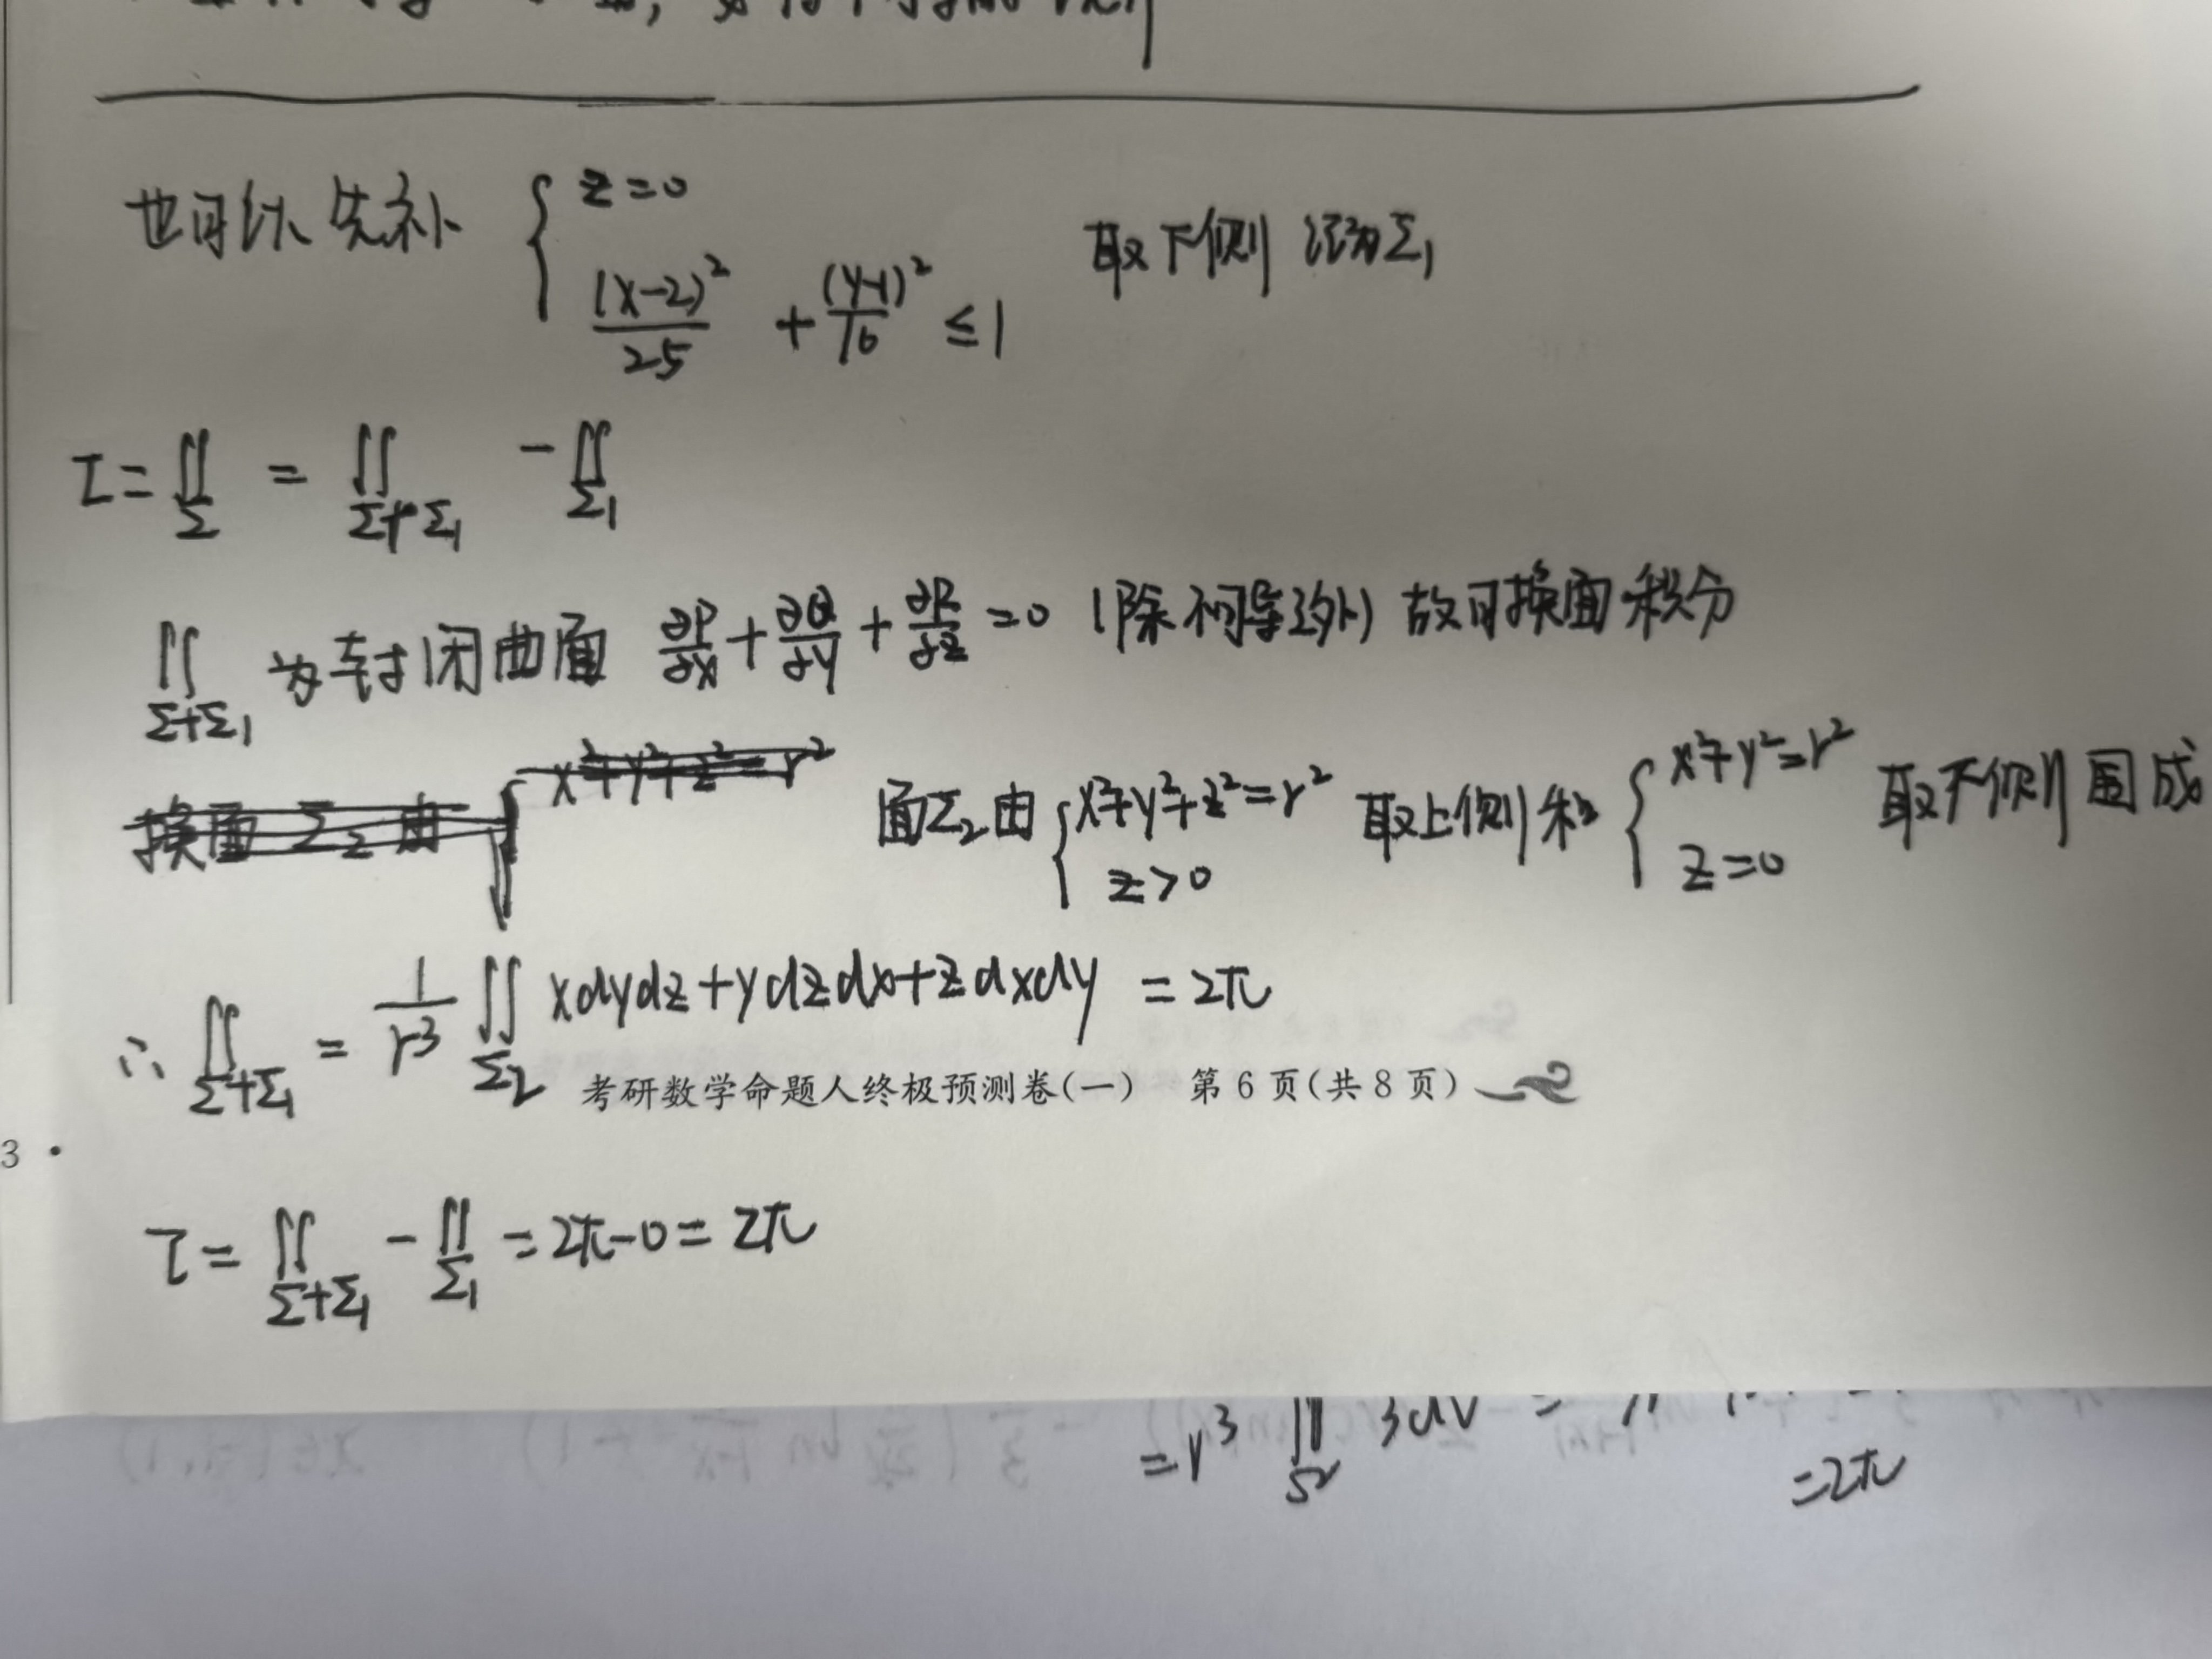 也可以 先补 { z=0
(x-2)²/25 + (y-1)²/16 ≤ 1 取下侧 记为Σ₁
I = ∬_Σ = ∬_{Σ+Σ₁} - ∬_{Σ₁}
∬_{Σ+Σ₁} 为封闭曲面 ∂P/∂x + ∂Q/∂y + ∂R/∂z = 0 (除不可导点外) 故可换面积分
换面 Σ₂ 由 { x²+y²+z²=r²
面Σ₂由 { x²+y²+z²=r² z>0 取上侧 和 { x²+y²=r² z=0 取下侧 围成
∴ ∬_{Σ+Σ₁} = 1/r³ ∬_{Σ₂} xdydz+ydzdx+zdxdy = 2π
考研数学命题人终极预测卷(一) 第 6 页(共 8 页)
3 ·
I = ∬_{Σ+Σ₁} - ∬_{Σ₁} = 2π-0 = 2π
=2π